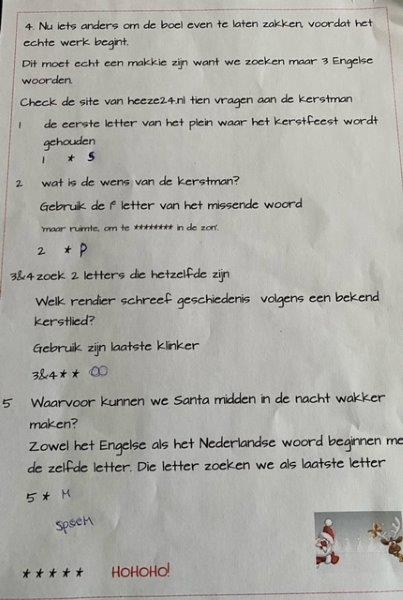 4. Nu iets anders om de boel even te laten zakken, voordat het
echte werk begint.
Dit moet echt een makkie zijn want we zoeken maar 3 Engelse
woorden.
Check de site van heeze24.nl tien vragen aan de kerstman
1 de eerste letter van het plein waar het kerstfeest wordt
gehouden
1 * S
2 wat is de wens van de kerstman?
Gebruik de 1e letter van het missende woord
'maar ruimte, om te ******** in de zon'.
2 * P
3&4 zoek 2 letters die hetzelfde zijn
Welk rendier schreef geschiedenis volgens een bekend
kerstlied?
Gebruik zijn laatste klinker
3&4 * * OO
5 Waarvoor kunnen we Santa midden in de nacht wakker
maken?
Zowel het Engelse als het Nederlandse woord beginnen me
de zelfde letter. Die letter zoeken we als laatste letter
5 * M
* * * * * HOHOHO!